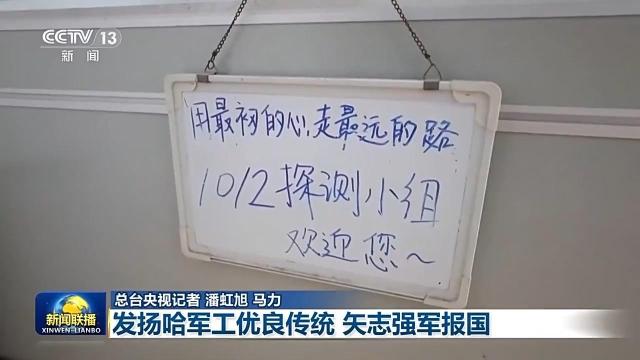 CCTV 13
新闻
用最初的心,走最远的路
1012探测小组
欢迎您~
总台央视记者 潘虹旭 马力
新闻联播
XINWEN-LIANBO
发扬哈军工优良传统 矢志强军报国